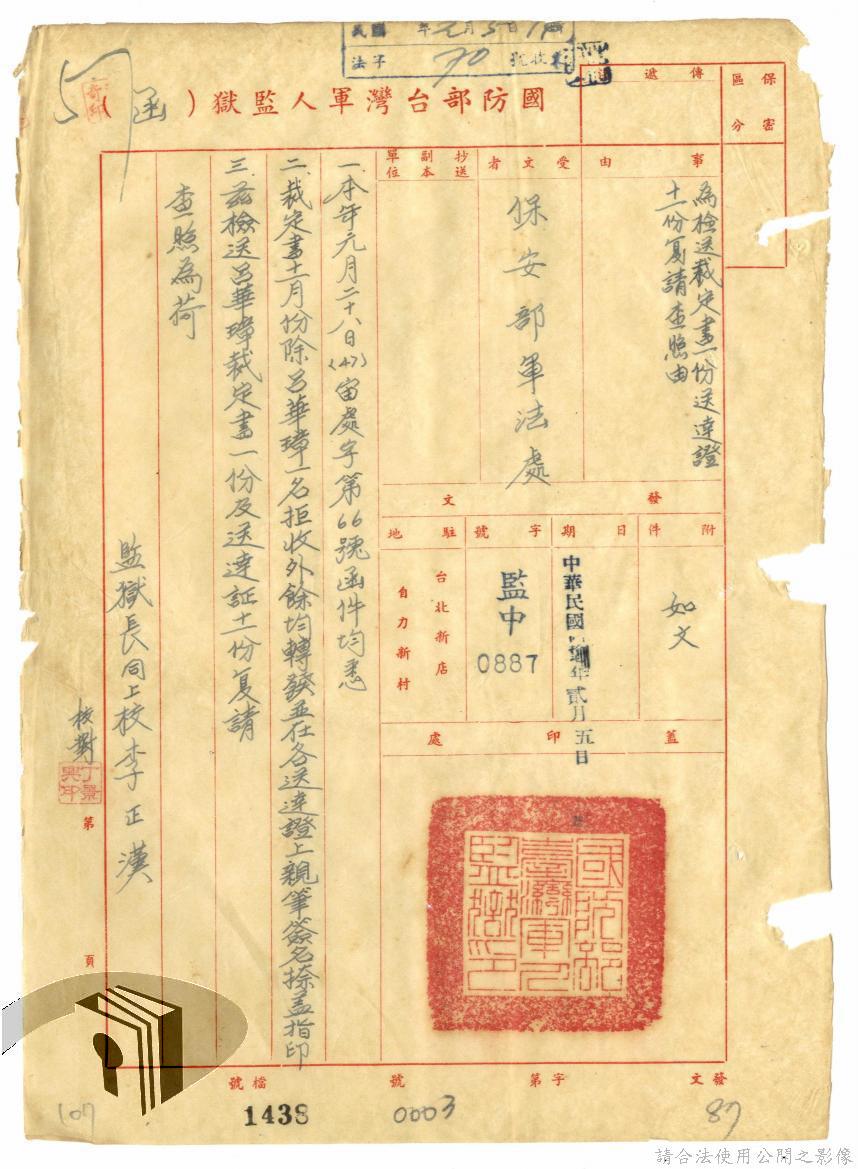 國防部台灣軍人監獄(函)
保密區分
傳遞
事由
為檢送裁定書一份送達證
十一份复請查照由
受文者
保安部軍法處
抄送副本單位
發文
附件
如文
日期
中華民國 年貳月五日
字號
監中
0887
駐地
台北新店
自力新村
蓋印處
國防部
臺灣軍人
監獄印
一本年元月二十八日(47)宙處字第66號函件均悉
二裁定書十一月份除呂華璋一名拒收外餘均轉發並在各送達證上親筆簽名捺蓋指印
三茲檢送呂華璋裁定書一份及送達証十一份复請
查照為荷
監獄長同上校李正漢
校對
丁景興印
第 頁
發文 字第 號
檔號
87
0003
1438
107
57
70
請合法使用公開之影像